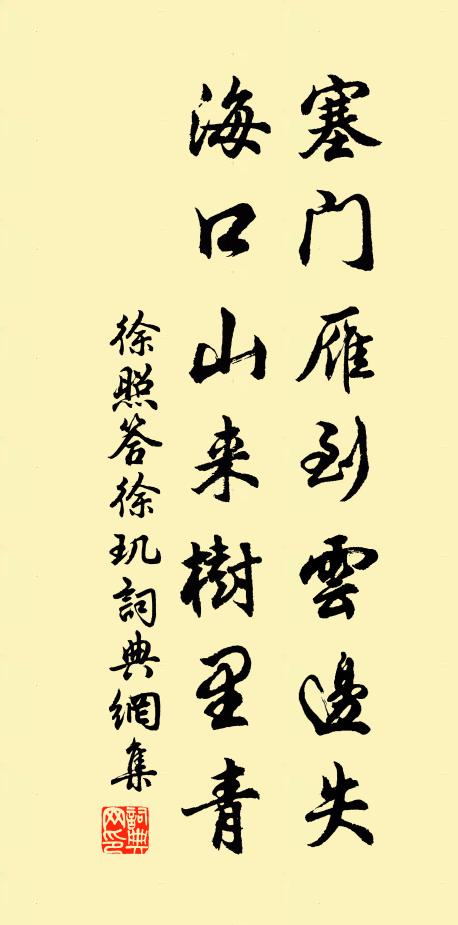 塞门雁到雲邊失
海口山来樹里青
徐照答徐玑詞典網集
詞典网印